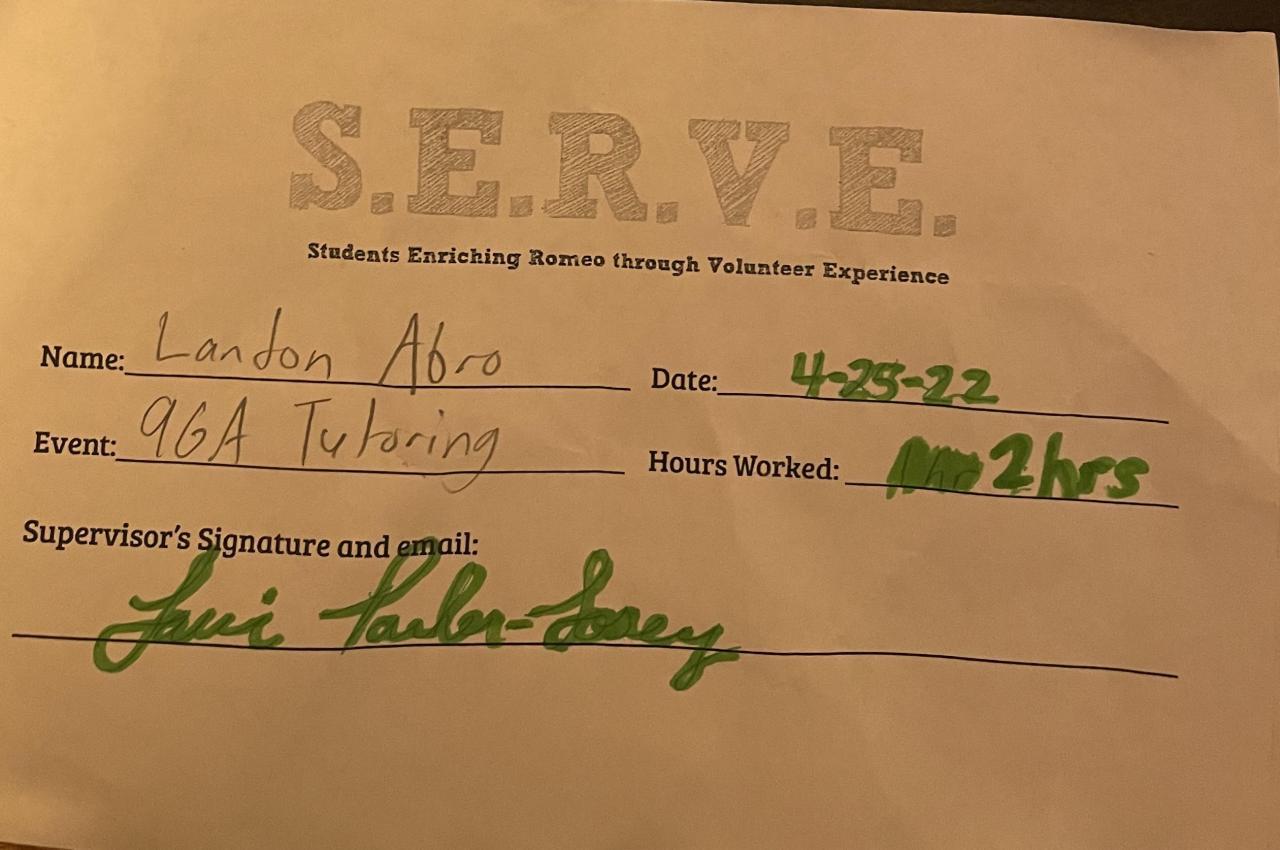 S.E.R.V.E.
Students Enriching Romeo through Volunteer Experience
Name: Landon Abro
Date: 4-25-22
Event: 9GA Tutoring
Hours Worked: 2hrs
Supervisor's Signature and email: